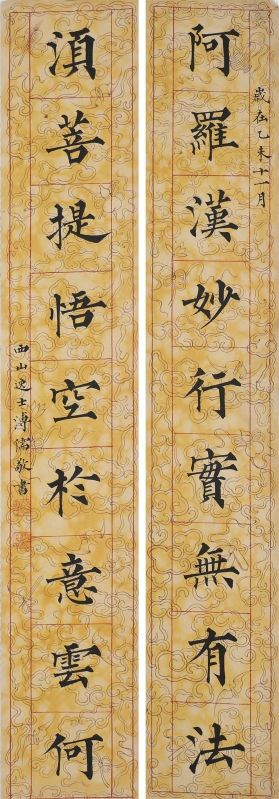 阿羅漢妙行實無有法
歲在乙未十一月
須菩提悟空於意雲何
西山逸士溥儒敬書